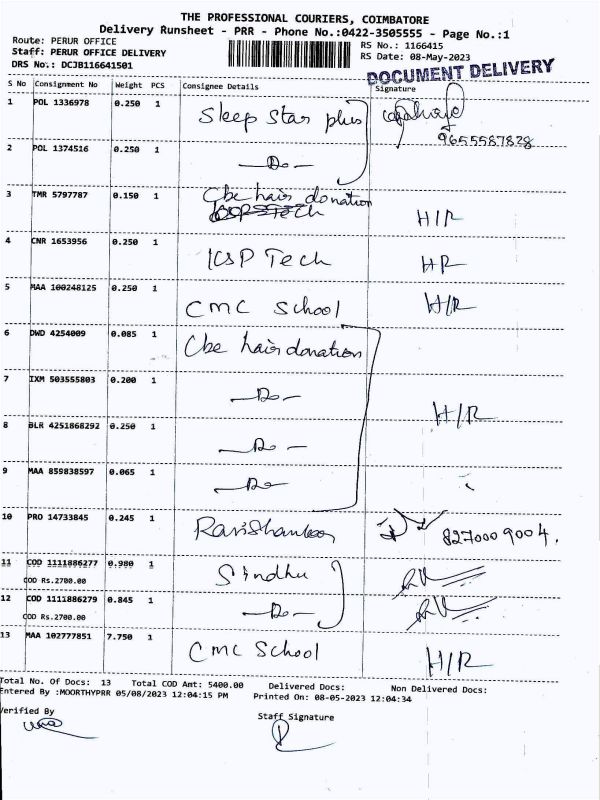 THE PROFESSIONAL COURIERS, COIMBATORE
Delivery Runsheet - PRR - Phone No.:0422-3505555 - Page No.:1
Route: PERUR OFFICE
Staff: PERUR OFFICE DELIVERY
DRS No: DCJB116641501
RS No.: 1166415
RS Date: 08-May-2023
DOCUMENT DELIVERY
S No Consignment No Weight PCS Consignee Details Signature
1 POL 1336978 0.250 1 Sleep Star plus
9655587828
2 POL 1374516 0.250 1 —Do—
3 TMR 5797787 0.150 1 Cbe hair donation
Tech H/R
4 CNR 1653956 0.250 1 KSP Tech HR
5 MAA 100248125 0.250 1 CMC School H/R
6 DWD 4254009 0.085 1 Cbe hair donation
7 IXM 503555803 0.200 1 —Do— H/R
8 BLR 4251868292 0.250 1 —Do—
9 MAA 859838597 0.065 1 —Do—
10 PRO 14733845 0.245 1 Ravishankar 827000 9004.
11 COD 1111886277 0.980 1 Sindhu
COD Rs.2700.00
12 COD 1111886279 0.845 1 —Do—
COD Rs.2700.00
13 MAA 102777851 7.750 1 CMC School H/R
Total No. Of Docs: 13 Total COD Amt: 5400.00 Delivered Docs: Non Delivered Docs:
Entered By :MOORTHYPRR 05/08/2023 12:04:15 PM Printed On: 08-05-2023 12:04:34
Verified By Staff Signature